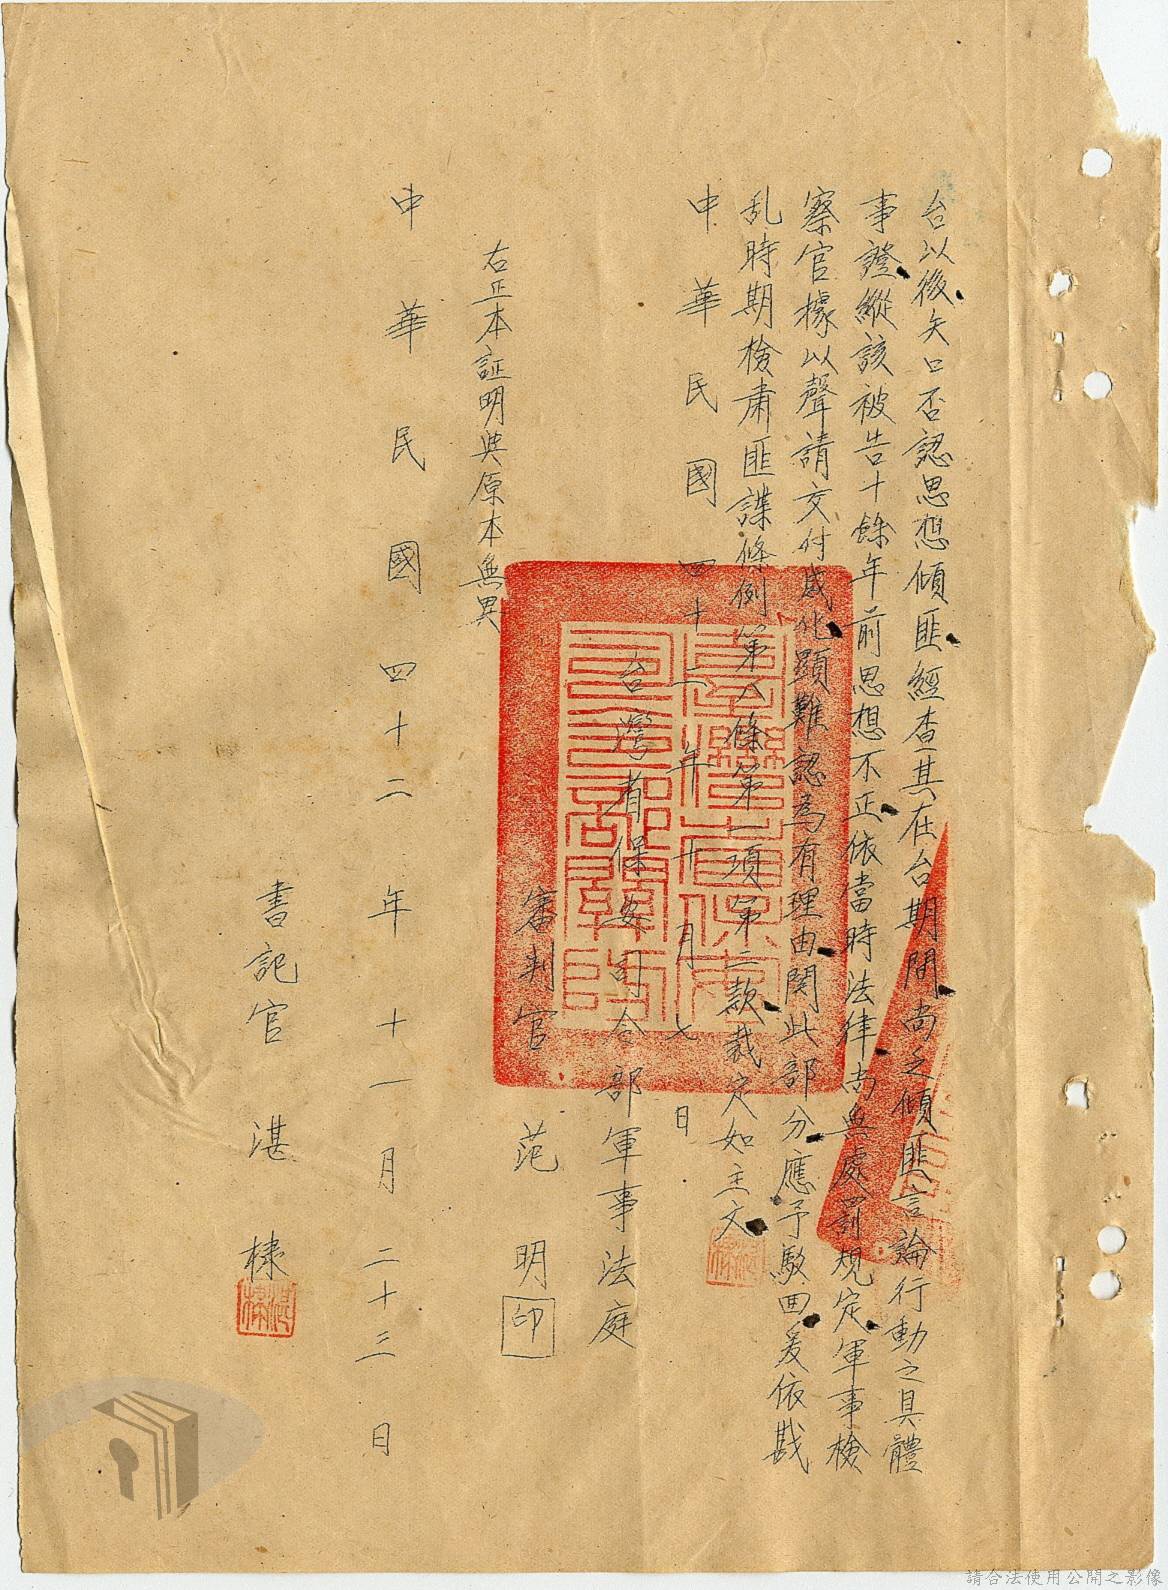 台以後矢口否認思想傾匪經查其在台期間尚乏傾匪言論行動之具體
事證縱該被告十餘年前思想不正依當時法律尚無處罰規定軍事檢
察官據以聲請交付感化顯難認為有理由関此部分應予駁回爰依戡
乱時期檢肅匪諜條例第八條第一項第二款裁定如主文
中華民國四十二年十月七日
台灣省保安司令部軍事法庭
審判官 范明 印
右正本証明與原本無異
中華民國四十二年十一月二十三日
書記官 湛棣
請合法使用公開之影像